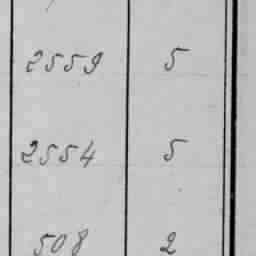 2559 5
2554 5
508 2